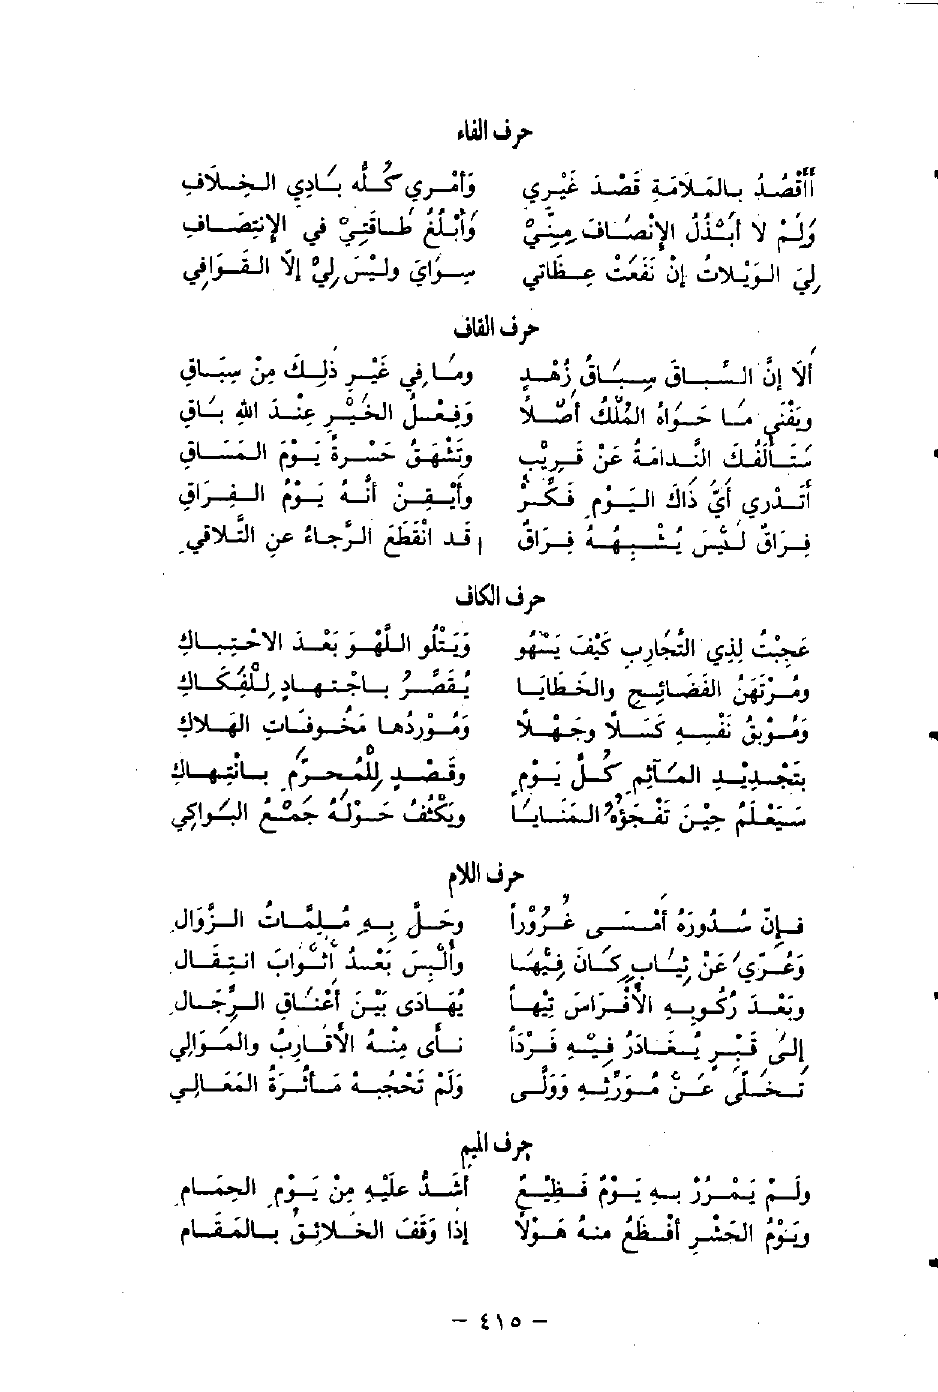 حرف الفاء
أأقْصُدُ بالمَلَامَةِ قَصْدَ غَيْرِي وَأمْرِي كُلُّه بَادِي الخِلَافِ
وَلَمْ لا أبْذُلُ الإنْصَافَ مِنِّيْ وَأبْلُغُ طَاقَتِيْ في الإنتِصَافِ
لِيَ الوَيْلاتُ إنْ نَفَعَتْ عِظَاتي سِوَايَ ولَيْسَ لِيْ إلّا القَوَافِي
حرف القاف
ألَا إنَّ السِّبَاقَ سِبَاقُ زُهْدٍ ومَا في غَيْرِ ذلِكَ مِنْ سِبَاقِ
ويَفْنَى مَا حَوَاهُ المُلْكُ أصْلاً وَفِعْلُ الخَيْرِ عِنْدَ اللهِ بَاقِ
سَتَألَفُكَ النَّدامَةُ عَنْ قَرِيْبٍ وتَشْهَقُ حَسْرةً يَوْمَ المَسَاقِ
أتَدْرِي أيُّ ذَاكَ اليَوْمِ فَكِّرْ وأيْقِنْ أنَّهُ يَوْمُ الفِرَاقِ
فِرَاقٌ لَيْسَ يُشْبِهُهُ فِرَاقٌ قَد انْقَطَعَ الرَّجاءُ عنِ التَّلاقي
حرف الكاف
عَجِبْتُ لِذِي التَّجَارِبِ كَيْفَ يَسْهُو وَيَتْلُو اللَّهْوَ بَعْدَ الاحْتِبَاكِ
ومُرْتَهَنُ الفَضَائِحِ والخَطَايَا يُقَصِّرُ باجْتِهادٍ لِلْفَكَاكِ
وَمُوْبِقُ نَفْسِهِ كَسَلاً وجَهْلاً وَمُوْرِدُها مَخُوفَاتِ الهَلاكِ
بتَجْدِيْدِ المَآثِمِ كُلَّ يَوْمٍ وقَصْدٍ لِلْمُحرَّمِ بانْتِهاكِ
سَيَعْلَمُ حِيْنَ تَفْجَؤُهُ المَنَايَا ويَكْثُفُ حَوْلَهُ جَمْعُ البَواكِي
حرف اللام
فإنَّ سُدُورَهُ أمْسَى غُرُوْراً وحَلَّ بِهِ مُلِمَّاتُ الزَّوَالِ
وَعُرِّيَ عَنْ ثِيَابٍ كَانَ فِيْهَا وأُلْبِسَ بَعْدُ أثْوَابَ انتِقَالِ
وبَعْدَ رُكُوبِهِ الأفْرَاسَ تِيْهاً يُهَادَى بَيْنَ أعْنَاقِ الرِّجَالِ
إلىٰ قَبْرٍ يُغَادَرُ فِيْهِ فَرْدَاً نَأى مِنْهُ الأقَارِبُ والمَوَالِي
تَخَلَّى عَنْ مُوَرِّثِهِ وَوَلَّى وَلَمْ تَحْجُبهُ مَأثُرَةُ المَعَالِي
حرف الميم
ولَمْ يَمْرُرْ بِهِ يَوْمٌ فَظِيْعٌ أشَدُّ عَلَيْهِ مِنْ يَوْمِ الحِمَامِ
ويَوْمُ الحَشْرِ أفْظَعُ منهُ هَوْلاً إذا وَقَفَ الخَلائِقُ بالمَقَامِ
- ٤١٥ -